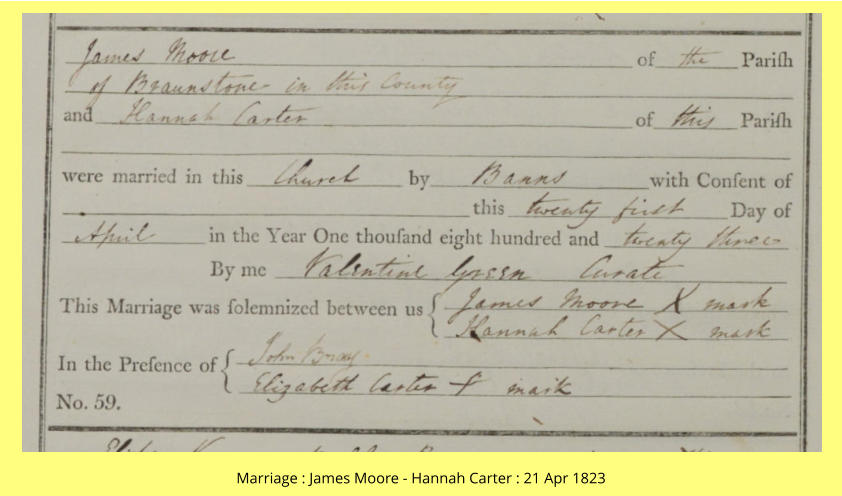 James Moore of the Pariſh
of Braunstone in this County
and Hannah Carter of this Pariſh
were married in this Church by Banns with Conſent of
this twenty first Day of
April in the Year One thouſand eight hundred and twenty three
By me Valentine Green Curate
This Marriage was ſolemnized between us { James Moore X mark
Hannah Carter X mark
In the Preſence of { John Bray
Elizabeth Carter X mark
No. 59.
Marriage : James Moore - Hannah Carter : 21 Apr 1823